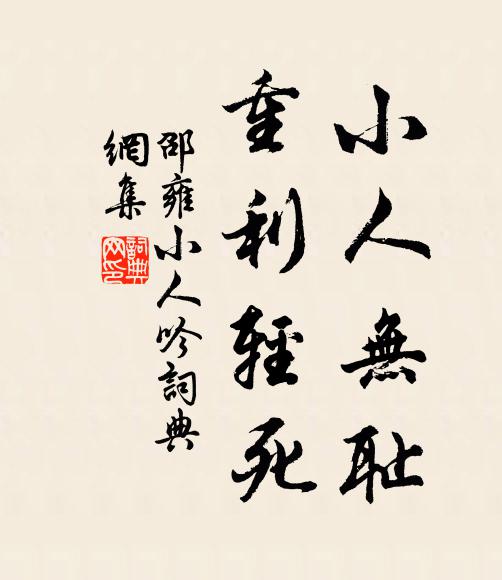 小人無恥
重利輕死
邵雍小人吟詞典
網集
詞典
网印